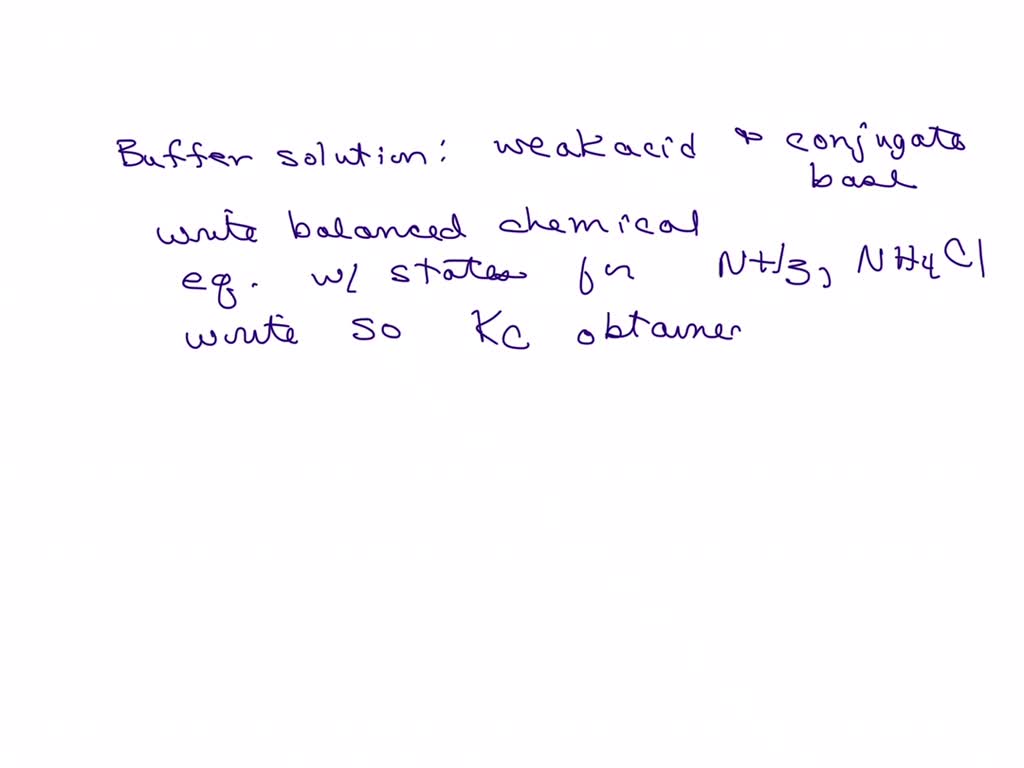 Buffer solution: weak acid & conjugate
base
write balanced chemical
eq. w/ states for NH3, NH4Cl
write so Kc obtained